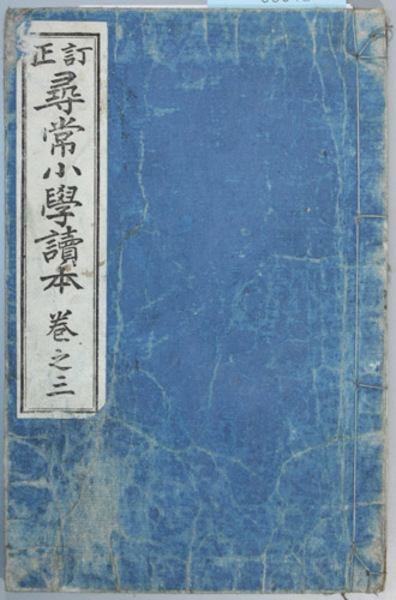 訂正
尋常小學讀本 巻之三